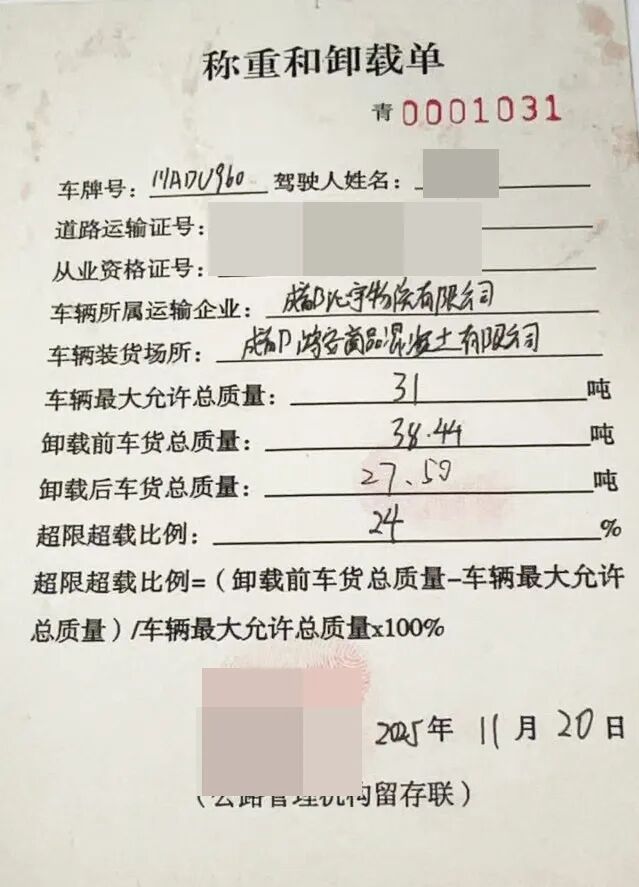 称重和卸载单
青0001031
车牌号：川ADU960 驾驶人姓名：
道路运输证号：
从业资格证号：
车辆所属运输企业：成都 宇物流有限公司
车辆装货场所：成都鸿安商品混凝土有限公司
车辆最大允许总质量：31吨
卸载前车货总质量：38.44吨
卸载后车货总质量：27.50吨
超限超载比例：24%
超限超载比例=（卸载前车货总质量-车辆最大允许
总质量）/车辆最大允许总质量x100%
2025年11月20日
（公路管理机构留存联）